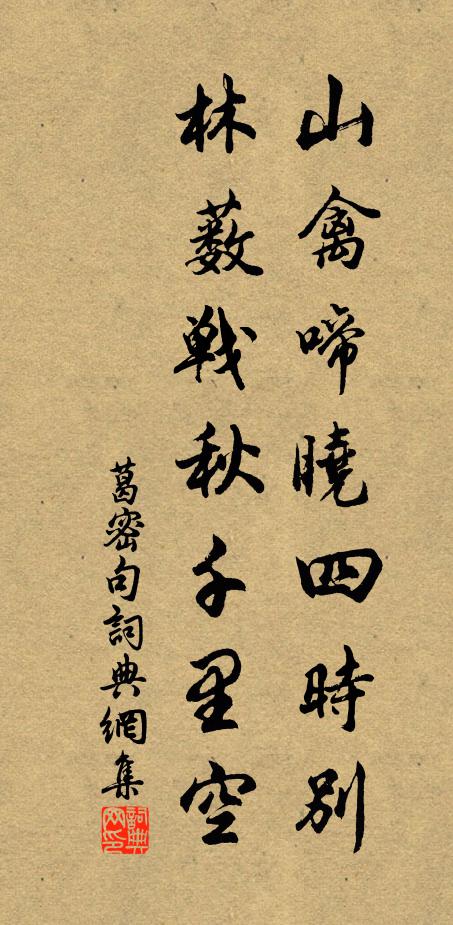 山禽啼曉四時別
林藪戰秋千里空
葛密句詞典網集
詞典
网印